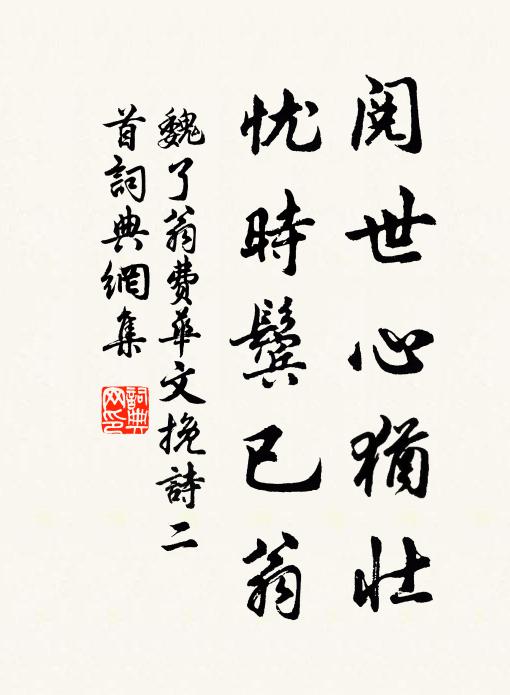 阅世心猶壮
忧時鬓已翁
魏了翁費華文挽詩二
首詞典網集
詞典
网印